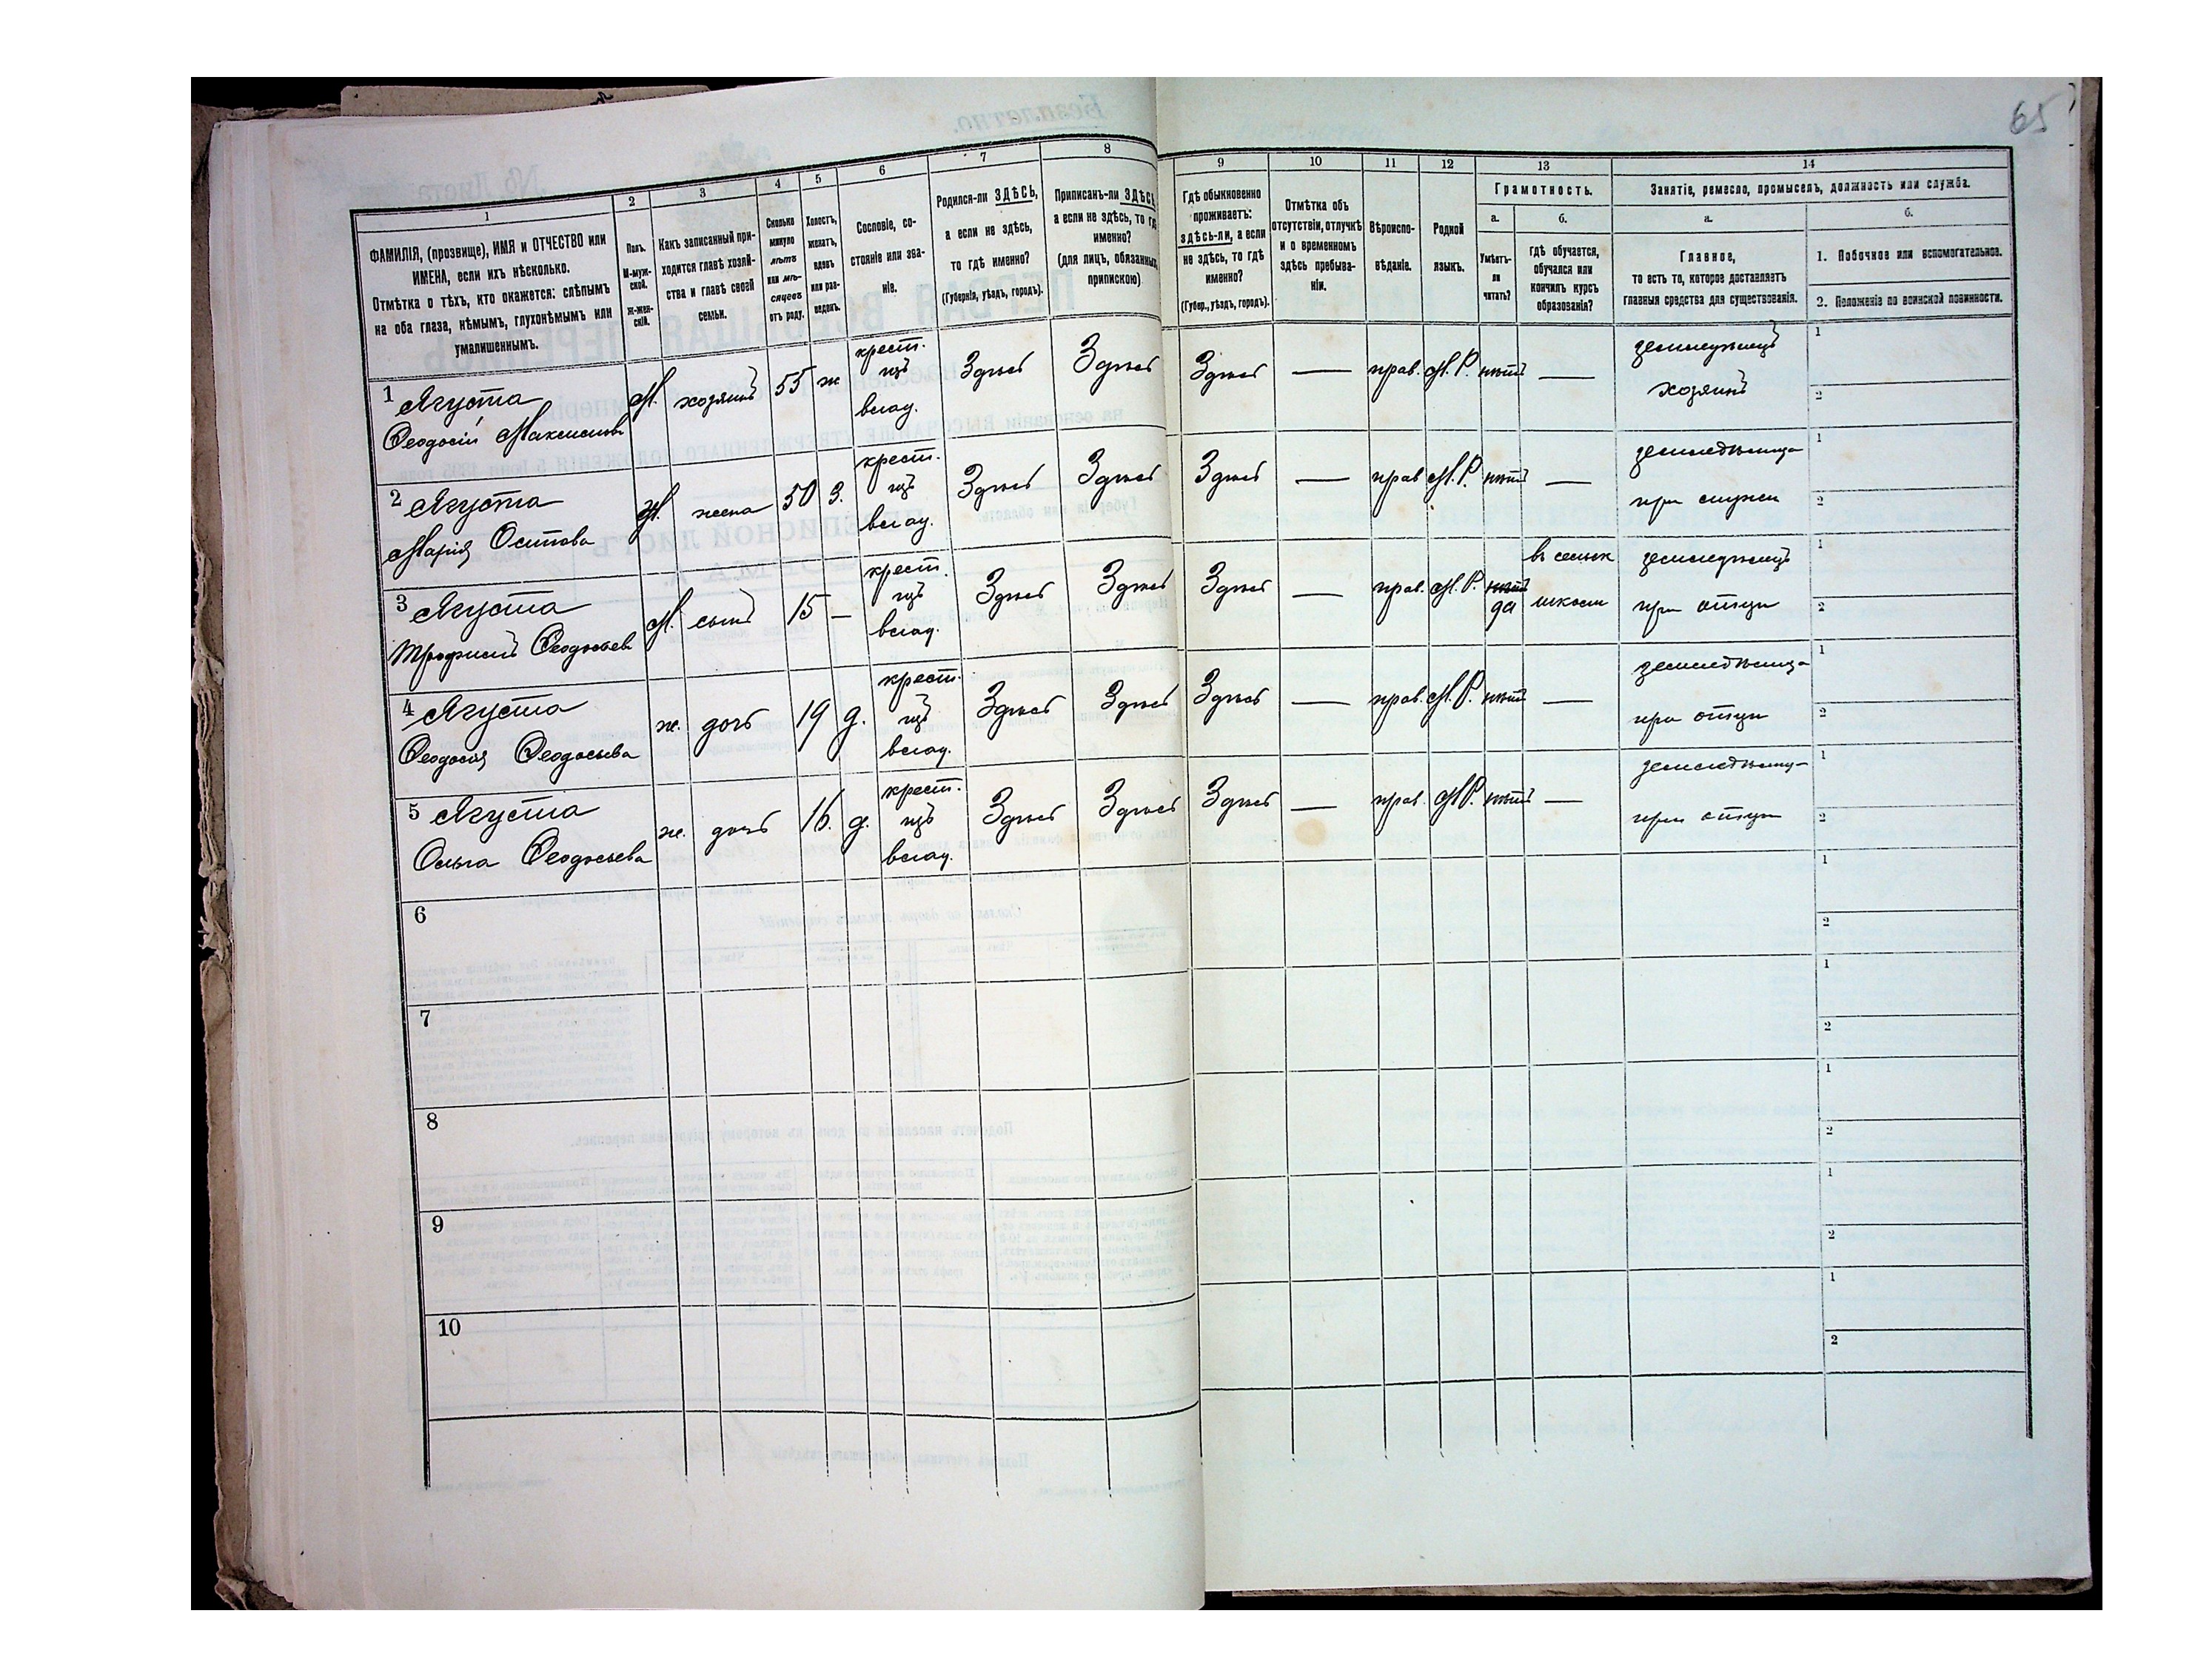 65
1 2 3 4 5 6 7 8 9 10 11 12 13 14
ФАМИЛІЯ, (прозвище), ИМЯ и ОТЧЕСТВО или
ИМЕНА, если ихъ нѣсколько.
Отмѣтка о тѣхъ, кто окажется: слѣпымъ
на оба глаза, нѣмымъ, глухонѣмымъ или
умалишеннымъ.
Полъ.
М-муж-
ской.
Ж-жен-
скій.
Какъ записанный при-
ходится главѣ хозяй-
ства и главѣ своей
семьи.
Сколько
минуло
лѣтъ
или мѣ-
сяцевъ
отъ роду.
Холостъ,
женатъ,
вдовъ
или раз-
веденъ.
Сословіе, со-
стояніе или зва-
ніе.
Родился-ли ЗДѢСЬ,
а если не здѣсь,
то гдѣ именно?
(Губернія, уѣздъ, городъ).
Приписанъ-ли ЗДѢСЬ,
а если не здѣсь, то гдѣ
именно?
(для лицъ, обязанныхъ
припискою)
Гдѣ обыкновенно
проживаетъ:
здѣсь-ли, а если
не здѣсь, то гдѣ
именно?
(Губер., уѣздъ, городъ).
Отмѣтка объ
отсутствіи, отлучкѣ
и о временномъ
здѣсь пребыва-
ніи.
Вѣроиспо-
вѣданіе.
Родной
языкъ.
Грамотность.
а.
Умѣетъ-
ли
читать?
б.
гдѣ обучается,
обучался или
кончилъ курсъ
образованія?
Занятіе, ремесло, промыселъ, должность или служба.
а.
Главное,
то есть то, которое доставляетъ
главныя средства для существованія.
б.
1. Побочное или вспомогательное.
2. Положеніе по воинской повинности.
1 Ягуста
Феодосій Максимовъ
М. хозяинъ 55 ж крест. изъ влад. Здѣсь Здѣсь Здѣсь — прав. М.Р. нѣтъ —
земледѣлецъ
хозяинъ
1
2
2 Ягуста
Марія Осипова
Ж. жена 50 З. крест. изъ влад. Здѣсь Здѣсь Здѣсь — прав М.Р. нѣтъ —
земледѣлица
при мужи
1
2
3 Ягуста
Трофимъ Феодосьев
М. сынъ 15 — крест. изъ влад. Здѣсь Здѣсь Здѣсь — прав. М.Р. нѣтъ да въ сельск школи
земледѣлецъ
при отци
1
2
4 Ягуста
Феодосія Феодосьева
ж. дочь 19 д. крест. изъ влад. Здѣсь Здѣсь Здѣсь — прав. М.Р. нѣтъ —
земледѣлица
при отци
1
2
5 Ягуста
Ольга Феодосьева
ж. дочь 16. д. крест. изъ влад. Здѣсь Здѣсь Здѣсь — прав. М.Р. нѣтъ —
земледѣлиц
при отци
1
2
6
1
2
7
1
2
8
1
2
9
1
2
10
1
2